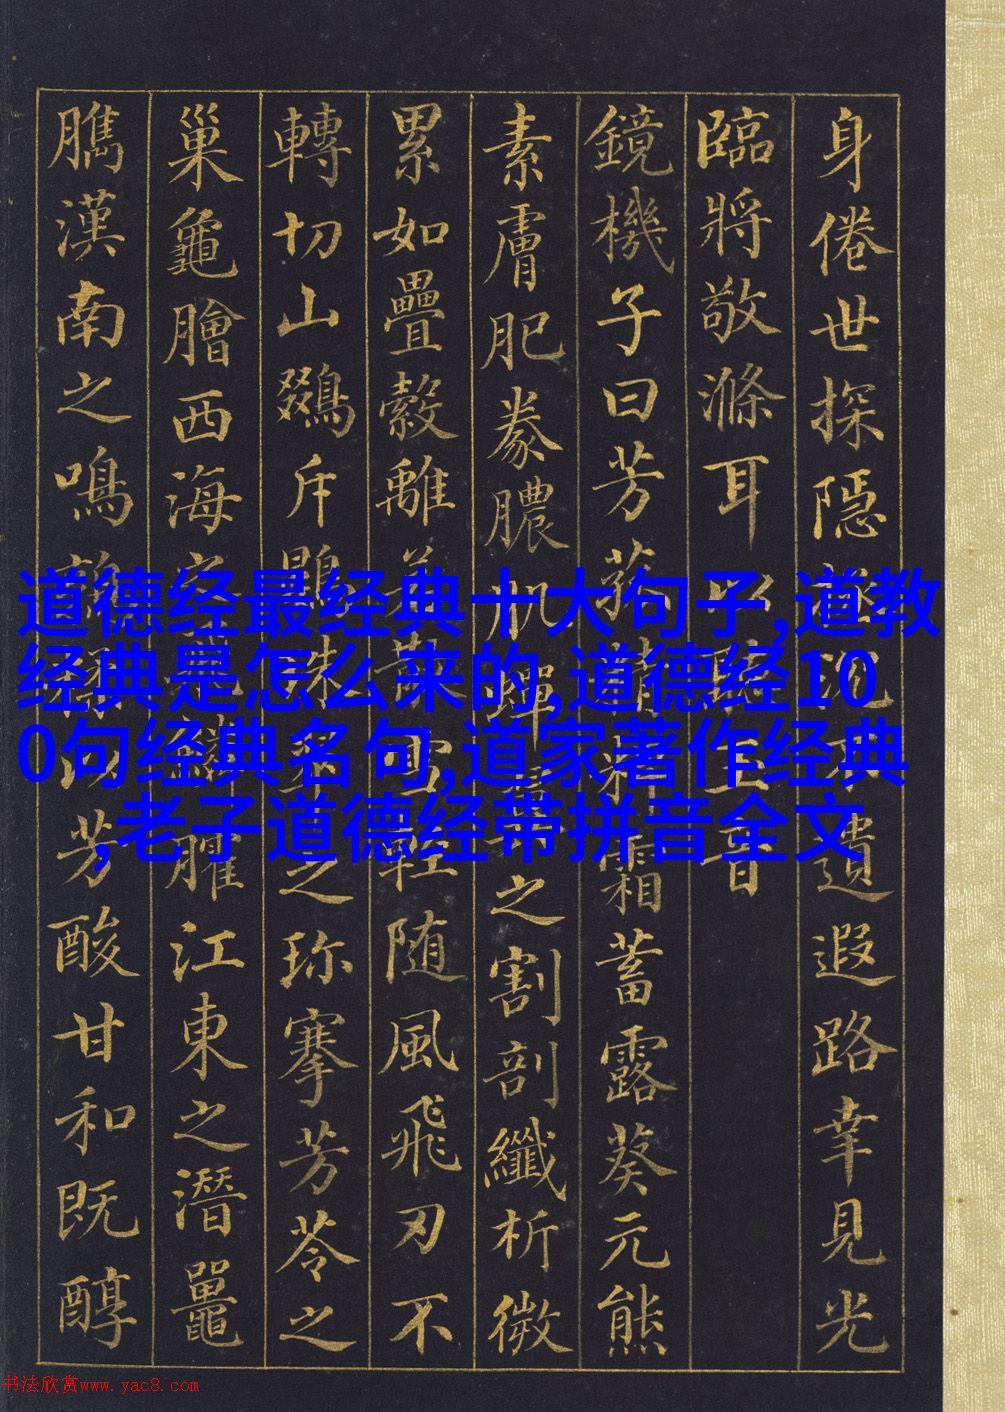 身倦世探隱沉不遺遐路幸見光
臨將敬滌耳以聽玉音
鏡機子曰芳菰精粺霜蓄露葵元熊
素膚肥豢膿肌蟬翼之割剖纖析微
累如疊縠離若散雪輕随風飛刃不
轉切山鵽斥鷃珠翠之珍搴芳苓之
巢龜膾西海之飛鱗臛江東之潛鼉
臇漢南之鳴鶉芳酸甘和既醇
道德经最经典十大句子,道教
经典是怎么来的,道德经10
0句经典名句,道家著作经典
,老子道德经带拼音全文
书法欣赏www.yac8.com